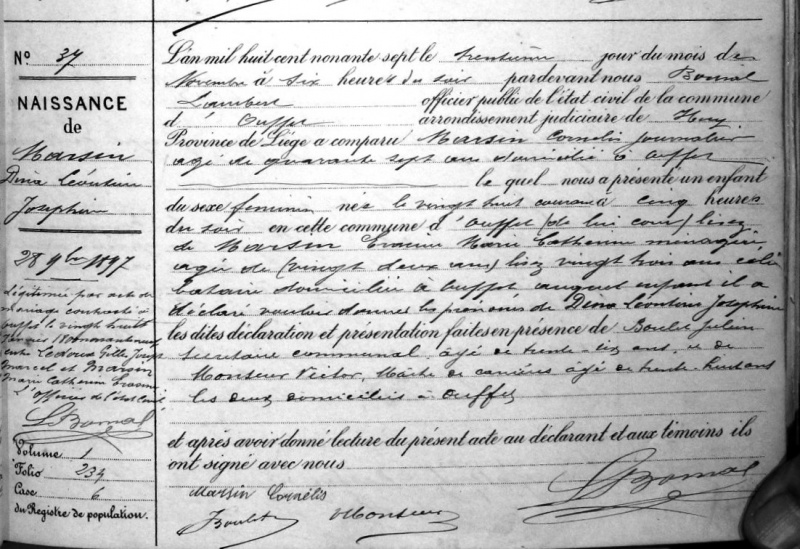 N° 37
NAISSANCE
de
Marsin
Dina Léontine
Joséphine
28 9bre 1897
Légitimée par acte de
mariage contracté à
Ouffet le vingt huit
Février 18 nonante neuf
entre Ledoux Gilles Joseph
Marcel et Marsin
Marie Catherine Erasmine
L'officier de l'état civil
L Bomal
Volume 1
Folio 234
Case 6
du Registre de population.
L'an mil huit cent nonante sept le trentième jour du mois de
Novembre à six heures du soir pardevant nous Bomal
Lambert officier public de l'état civil de la commune
d' Ouffet arrondissement judiciaire de Huy
Province de Liège a comparu Marsin Cornelis journalier
agé de quarante sept ans domicilié à Ouffet
le quel nous a présenté un enfant
du sexe feminin née le vingt huit courant à cinq heures
du soir en cette commune d'Ouffet (de lui cour) lisez
de Marsin Marie Catherine ménagère
agée de (vingt deux ans) lisez vingt trois ans céli
bataire domiciliée à Ouffet auquel enfant il a
déclaré vouloir donner les prénoms de Dina Léontine Joséphine
les dites déclaration et présentation faites en présence de Boulet Julien
secrétaire communal, âgé de trente-six ans, et de
Monseur Victor, Maître de carrières âgé de trente-huit ans
les deux domiciliés à Ouffet
et après avoir donné lecture du présent acte au déclarant et aux témoins ils
ont signé avec nous
Marsin Cornélis
J Boulet Monseur
L Bomal